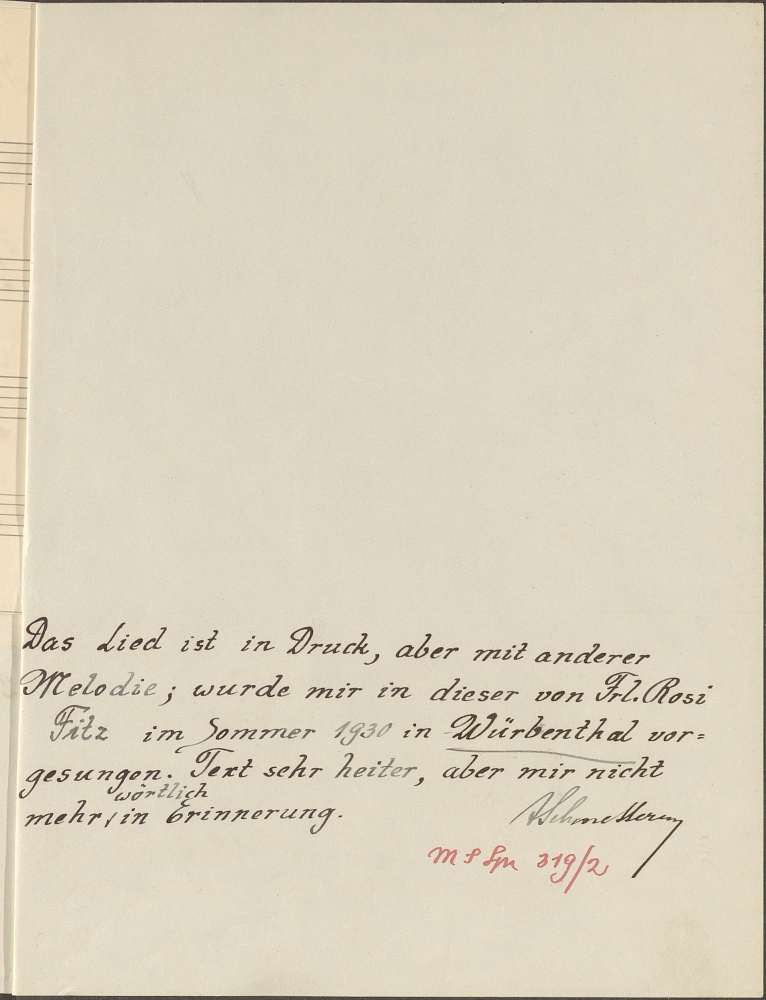 Das Lied ist in Druck, aber mit anderer
Melodie; wurde mir in dieser von Frl. Rosi
Fitz im Sommer 1930 in Würbenthal vor=
gesungen. Text sehr heiter, aber mir nicht
wörtlich
mehr, in Erinnerung.
319/2